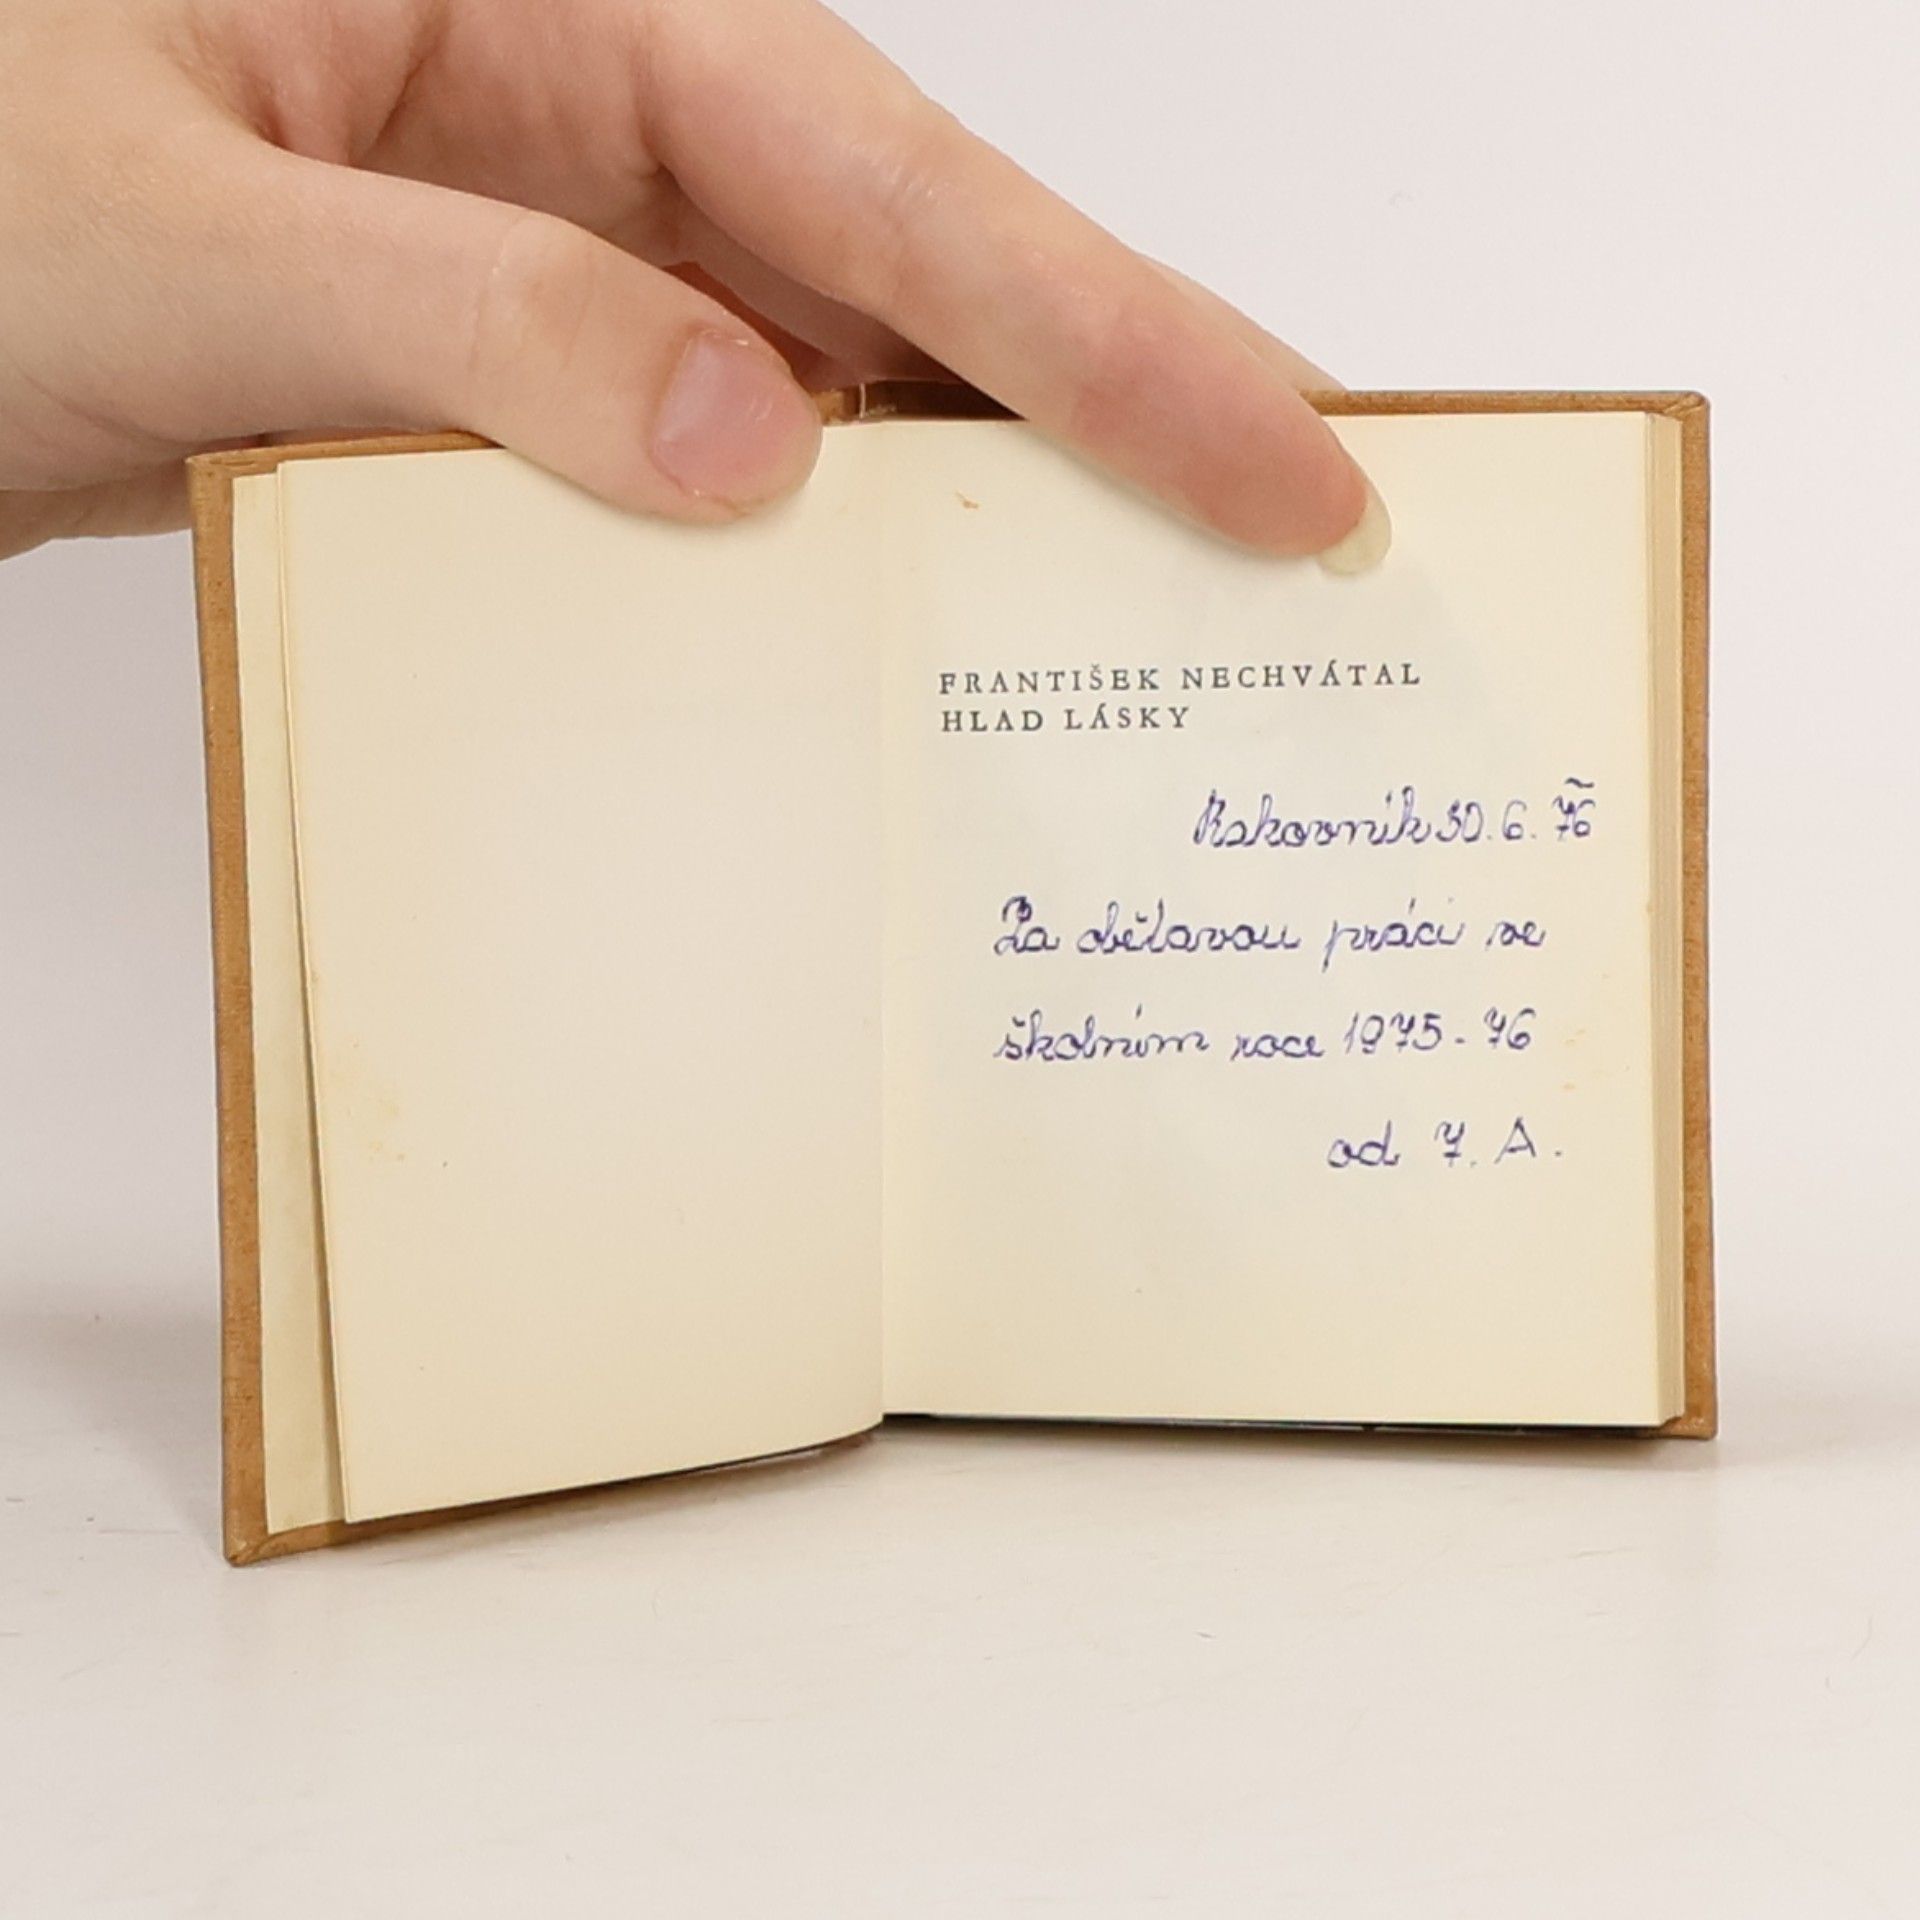 FRANTIŠEK NECHVÁTAL
HLAD LÁSKY
Rakovník 30. 6. 76
Za obětavou práci ve
školním roce 1975 - 76
od 7. A.